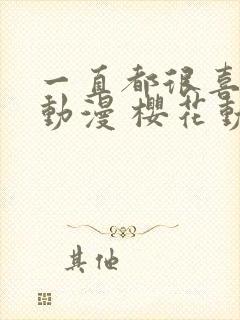 一直都很喜
動漫 櫻花動
其他